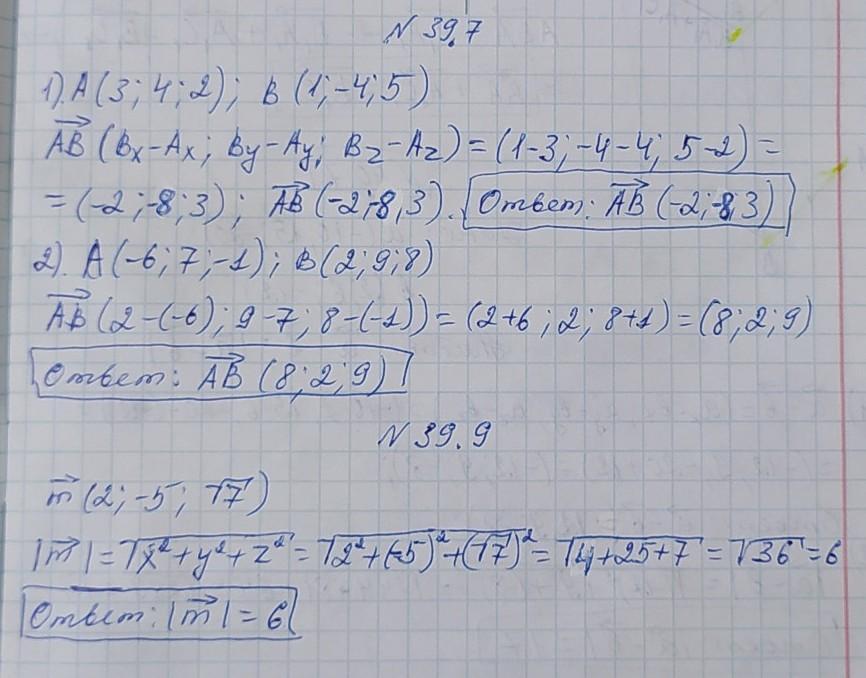 N 39.7
1). A(3; 4; 2); B(1; -4; 5)
AB⃗ (Bx-Ax; By-Ay; Bz-Az) = (1-3; -4-4; 5-2) =
= (-2; -8; 3); AB⃗ (-2; -8, 3). Ответ: AB⃗ (-2; -8; 3)
2). A(-6; 7; -1); B(2; 9; 8)
AB⃗ (2-(-6); 9-7; 8-(-1)) = (2+6; 2; 8+1) = (8; 2; 9)
Ответ: AB⃗ (8; 2; 9)
N 39.9
m⃗ (2; -5; √7)
|m⃗| = √(x²+y²+z²) = √(2²+(-5)²+(√7)²) = √(4+25+7) = √36 = 6
Ответ: |m⃗| = 6